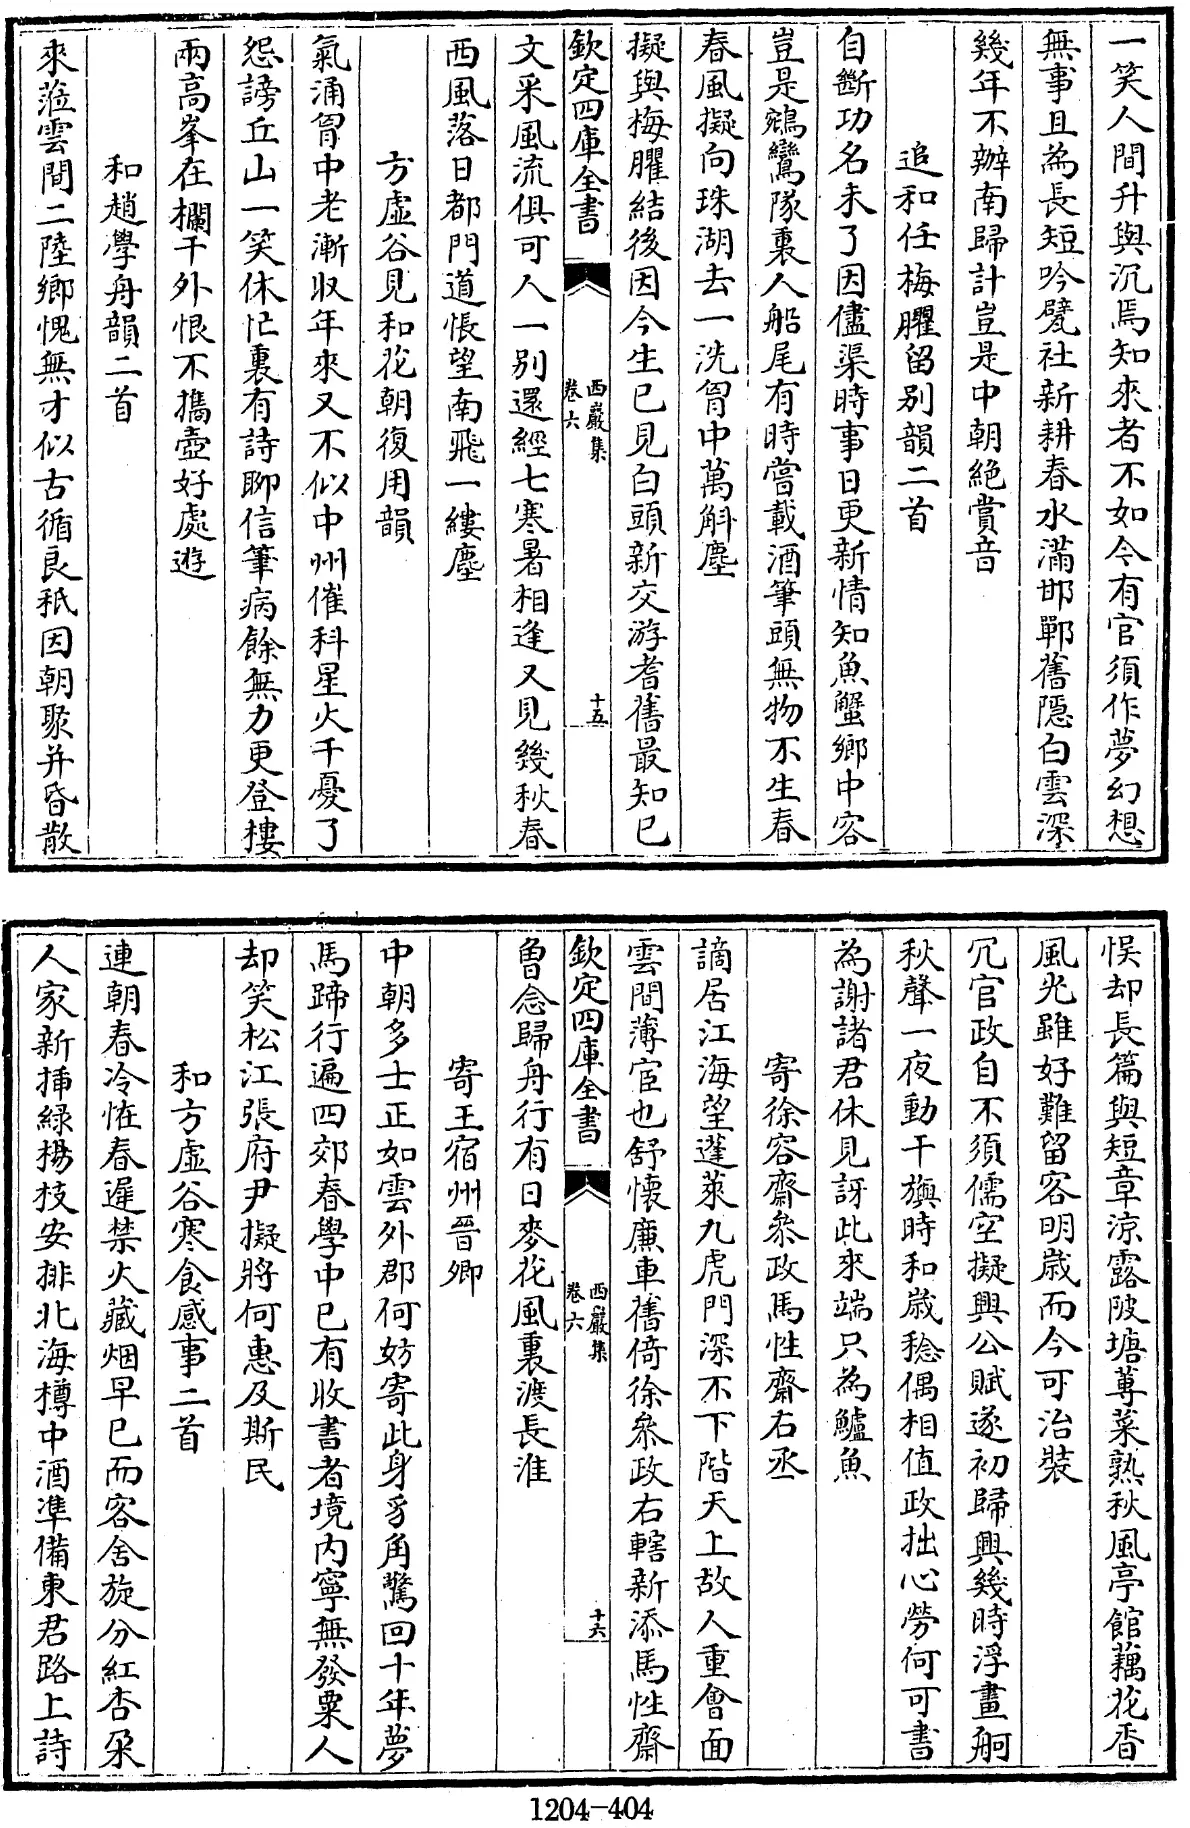 一笑人間升與沉焉知來者不如今有官須作夢幻想
無事且為長短吟甓社新耕春水滿邯鄲舊隱白雲深
幾年不辦南歸計豈是中朝絶賞音
追和任梅臞留别韻二首
自斷功名未了因儘渠時事日更新情知魚蟹鄉中客
豈是鵷鸞隊裏人船尾有時嘗載酒筆頭無物不生春
春風擬向珠湖去一洗胷中萬斛塵
擬與梅臞結後因今生已見白頭新交游耆舊最知己
欽定四庫全書
西巖集
卷六
十五
文采風流俱可人一別還經七寒暑相逢又見幾秋春
西風落日都門道悵望南飛一縷塵
方虛谷見和花朝復用韻
氣涌胷中老漸收年來又不似中州催科星火千憂了
怨謗丘山一笑休忙裏有詩聊信筆病餘無力更登樓
兩高峯在欄干外恨不攜壺好處遊
和趙學舟韻二首
來蒞雲間二陸鄉愧無才似古循良秖因朝聚并昏散
悮却長篇與短章涼露陂塘蓴菜熟秋風亭館藕花香
風光雖好難留客明歳而今可治裝
冗官政自不須儒空擬興公賦遂初歸興幾時浮畫舸
秋聲一夜動干旟時和歳稔偶相值政拙心勞何可書
為謝諸君休見訝此來端只為鱸魚
寄徐容齋叅政馬性齋右丞
謫居江海望蓬萊九虎門深不下階天上故人重會面
雲間薄宦也舒懷廉車舊倚徐叅政右轄新添馬性齋
欽定四庫全書
西巖集
卷六
十六
魯念歸舟行有日麥花風裏渡長淮
寄王宿州晉卿
中朝多士正如雲外郡何妨寄此身豸角驚回十年夢
馬蹄行遍四郊春學中已有收書者境内寧無發粟人
却笑松江張府尹擬將何惠及斯民
和方虛谷寒食感事二首
連朝春冷恠春遲禁火藏烟早已而客舍旋分紅杏朶
人家新揷緑楊枝安排北海樽中酒準備東君路上詩
1204-404